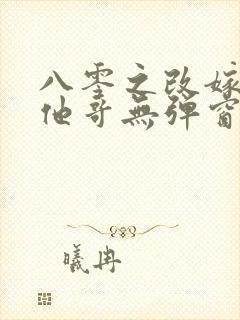 八零之改嫁
他哥無彈窗
曦冉